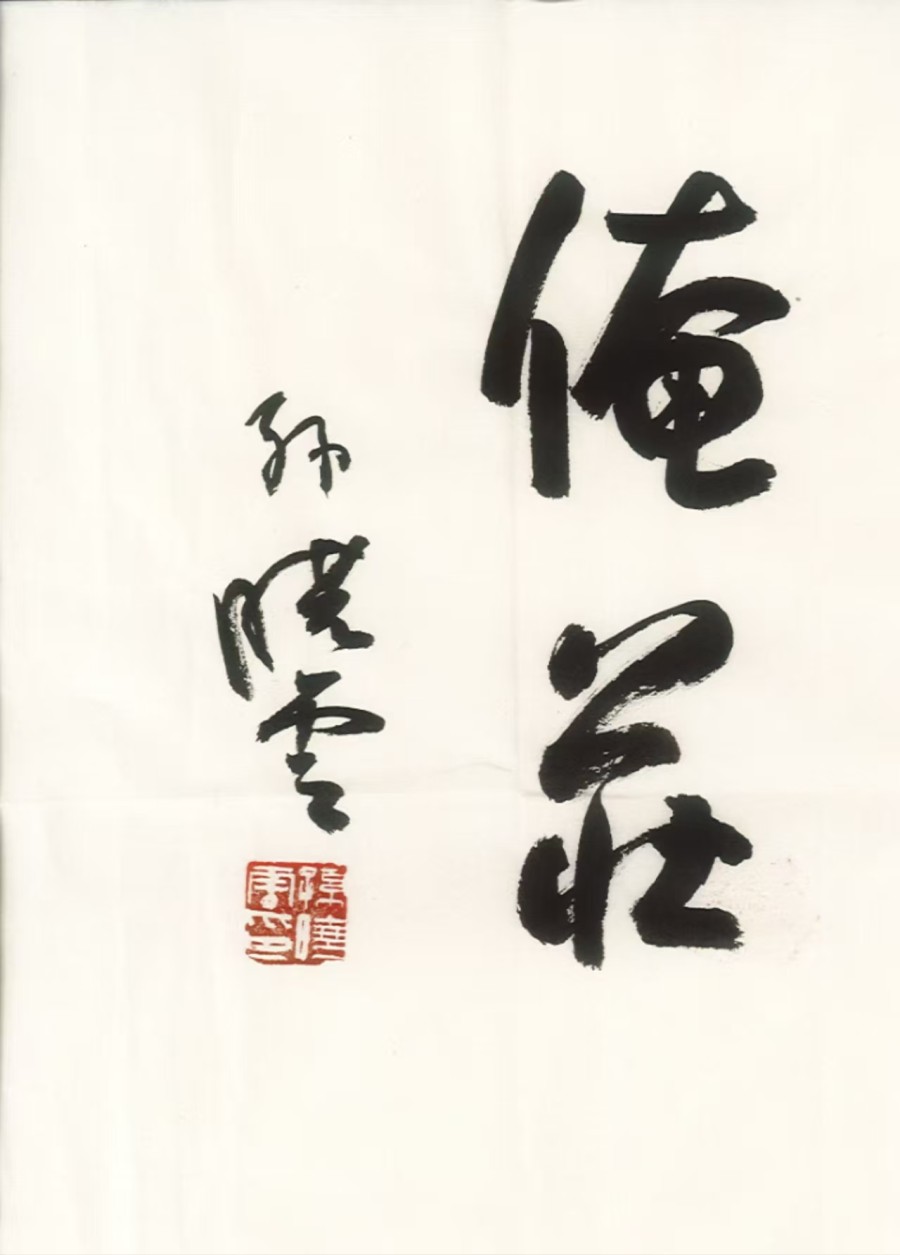 俺莊
孫曉雲
孫曉雲印